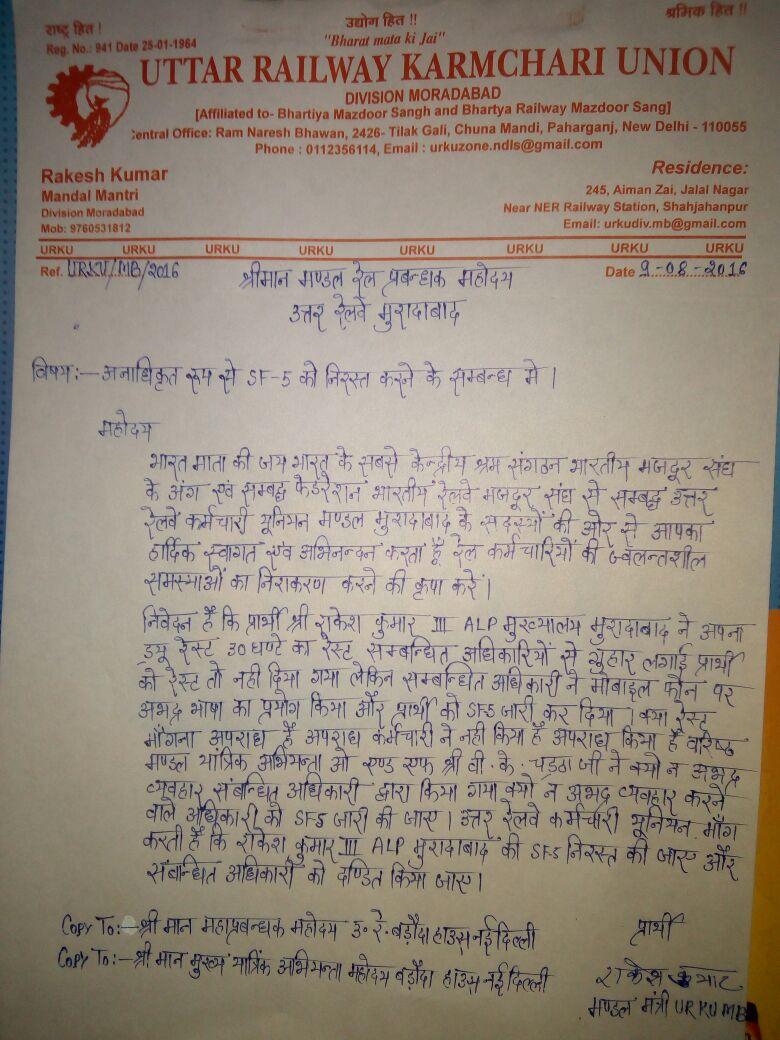 राष्ट्र हित ! उद्योग हित !! श्रमिक हित !!
Reg. No.: 941 Date 25-01-1964 "Bharat mata ki Jai"
UTTAR RAILWAY KARMCHARI UNION
DIVISION MORADABAD
[Affiliated to- Bhartiya Mazdoor Sangh and Bhartya Railway Mazdoor Sang]
entral Office: Ram Naresh Bhawan, 2426- Tilak Gali, Chuna Mandi, Paharganj, New Delhi - 110055
Phone : 0112356114, Email : urkuzone.ndls@gmail.com
Rakesh Kumar
Mandal Mantri
Division Moradabad
Mob: 9760531812
Residence:
245, Aiman Zai, Jalal Nagar
Near NER Railway Station, Shahjahanpur
Email: urkudiv.mb@gmail.com
URKU URKU URKU URKU URKU URKU URKU URKU
Ref. URKU/MB/2016 Date 9-08-2016
श्रीमान मण्डल रेल प्रबन्धक महोदय
उत्तर रेलवे मुरादाबाद
विषय:- अनाधिकृत रूप से SF-5 को निरस्त करने के सम्बन्ध मे ।
महोदय
भारत माता की जय भारत के सबसे केन्द्रीय श्रम संगठन भारतीय मजदूर संघ
के अंग एवं सम्बद्ध फेडरेशन भारतीय रेलवे मजदूर संघ से सम्बद्ध उत्तर
रेलवे कर्मचारी यूनियन मण्डल मुरादाबाद के सदस्यों की ओर से आपका
हार्दिक स्वागत एवं अभिनन्दन करता है, रेल कर्मचारियों की ज्वलन्तशील
समस्याओं का निराकरण करने की कृपा करें ।
निवेदन है कि प्रार्थी श्री राकेश कुमार III ALP मुख्यालय मुरादाबाद ने अपना
ड्यू रेस्ट 30 घण्टे का रेस्ट सम्बन्धित अधिकारियों से गुहार लगाई प्रार्थी
को रेस्ट तो नही दिया गया लेकिन सम्बन्धित अधिकारी ने मोबाइल फोन पर
अभद्र भाषा का प्रयोग किया और प्रार्थी को SF5 जारी कर दिया । क्या रेस्ट
माँगना अपराध है अपराध कर्मचारी ने नही किया है अपराध किया है वरिष्ठ
मण्डल यांत्रिक अभियन्ता ओ एण्ड एफ श्री वी. के. चड्ठा जी ने क्यो न अभद्र
व्यवहार संबन्धित अधिकारी द्वारा किया गया क्यो न अभद्र व्यवहार करने
वाले अधिकारी को SF5 जारी की जाए । उत्तर रेलवे कर्मचारी यूनियन माँग
करती है कि राकेश कुमार III ALP मुरादाबाद की SF5 निरस्त की जाए और
संबन्धित अधिकारी को दण्डित किया जाए ।
Copy To:- श्री मान महाप्रबन्धक महोदय उ. रे. बड़ौदा हाउस नई दिल्ली
Copy To:- श्री मान मुख्य यांत्रिक अभियन्ता महोदय बड़ौदा हाउस नई दिल्ली
प्रार्थी
राकेश कुमार
मण्डल मंत्री URKU MB